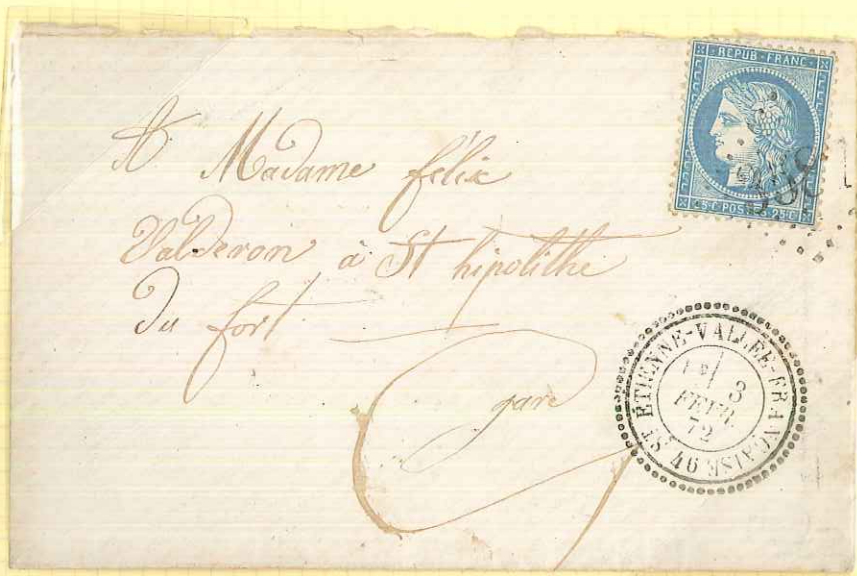 REPUB · FRANC
25 C POSTES 25 C
A Madame félix
Valderon à St hipolithe
du fort
gard
ST ETIENNE-VALLÉE-FRANÇAISE 46
3
FEVR.
72